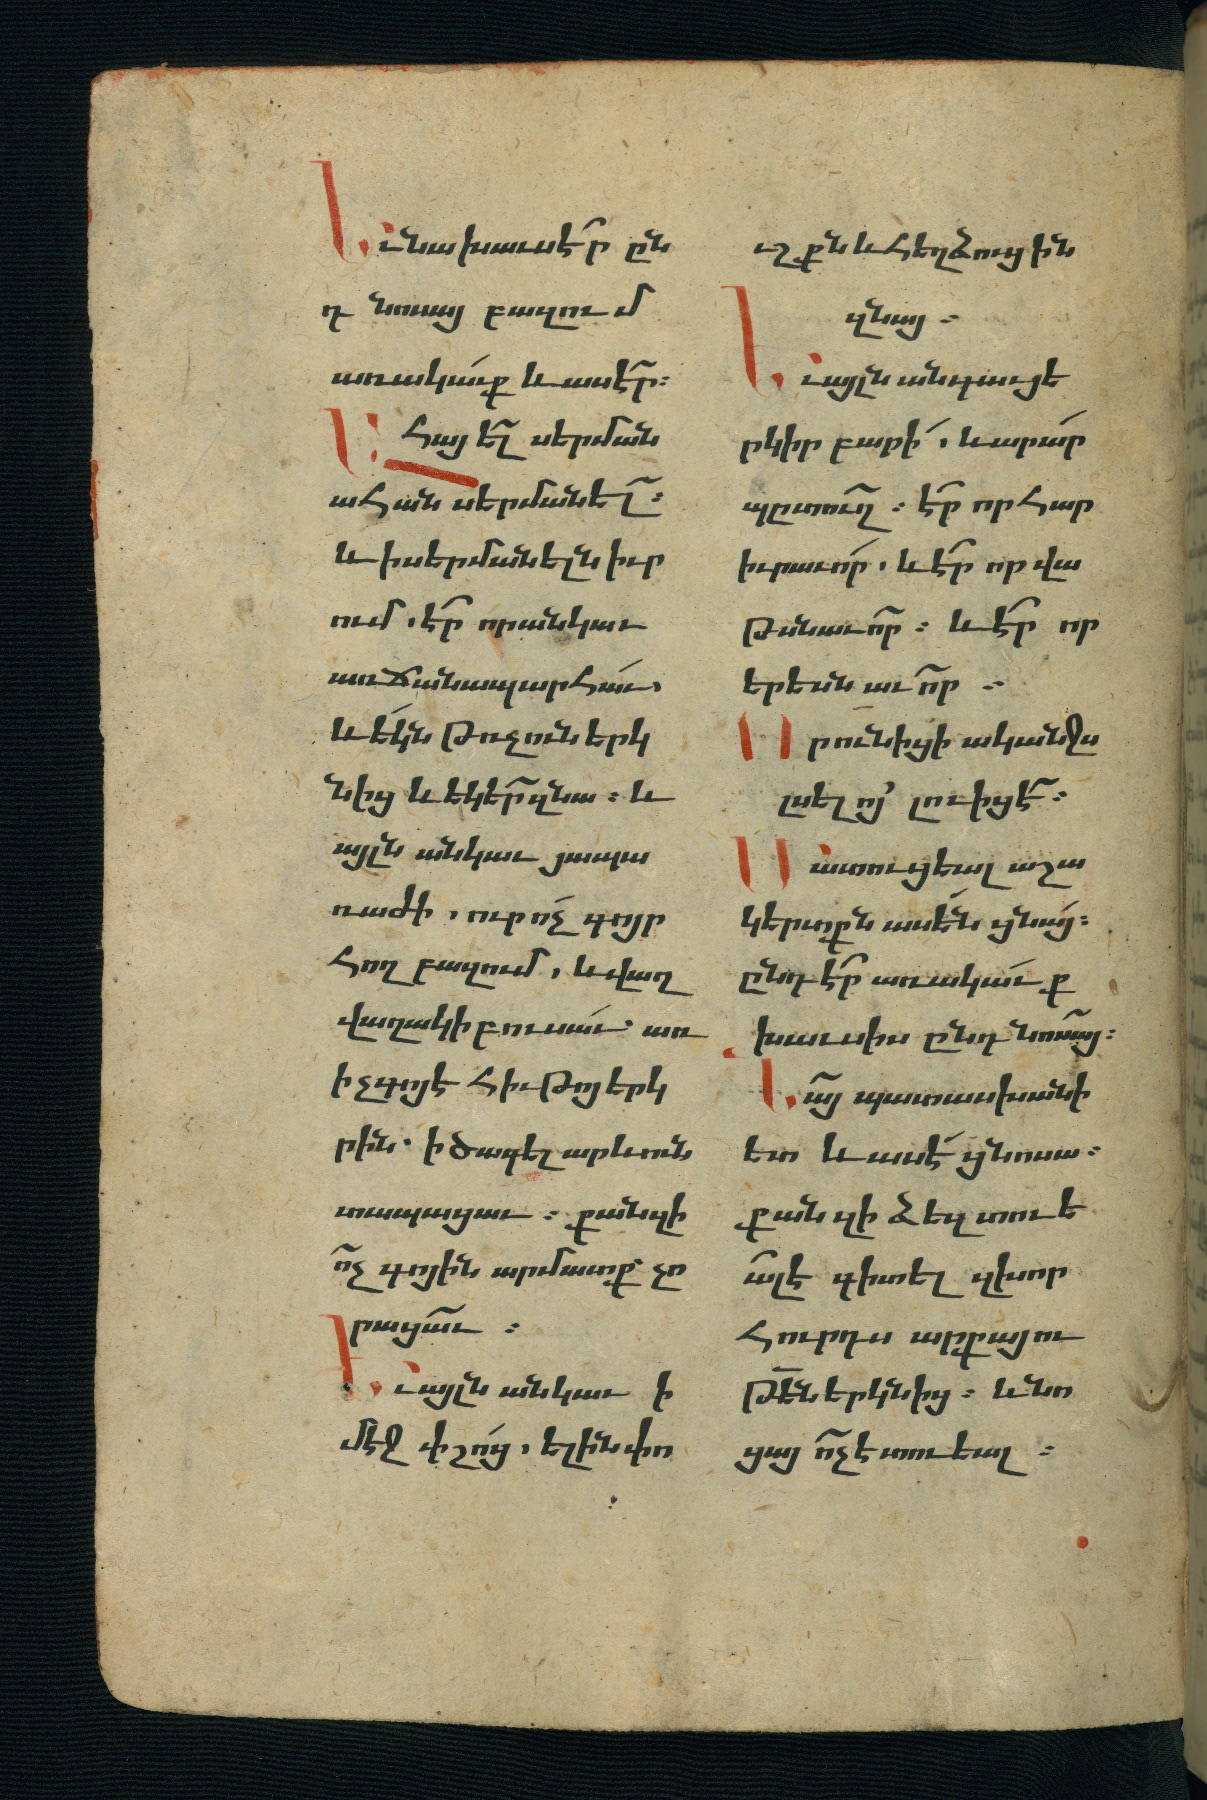 Եւ նա խաւսէր ըն
դ նոսայ բազում
առակաւք և ասէր։
Ահայ ել սերման
ահան սերմանել։
և ի սերմանելն իւր
ում, էր որ անկաւ
առ ճանապարհաւ,
և եկն թռչուն երկ
նից և եկեր զնա։ և
այլն անկաւ յապա
ռաժի, ուր ոչ գոյր
հող բազում, և վաղ
վաղակի բուսաւ՝ առ
ի չգոյէ հիւթոյ երկ
րին՝ ի ծագել արևուն
տապացաւ։ քանզի
ոչ գոյին արմատք՝ չո
րացաւ ։
Եւ այլն անկաւ ի
մէջ փշոց, ելին փո
ւշքն և հեղձուցին
զնայ ։
Եւ այլն անգաւ յե
րկիր բարի, և արար
պըտուղ։ էր որ հար
իւրաւոր, և էր որ վա
թսնաւոր։ և էր որ
երեսնաւոր ։
Որ ունիցի ականջս
լսել ոյ լուիցէ։
Մատուցեալ աշա
կերտքն ասեն ցնայ։
ընդ էր առակաւք
խաւսիս ընդ նոսայ։
Նայ պատասխանի
ետ և ասէ ցնոսա։
քանզի ձեզ տուե
ալ է գիտել զխոր
հուրդս արքայու
թեն երկնից։ և նո
ցայ ոչ է տուեալ ։